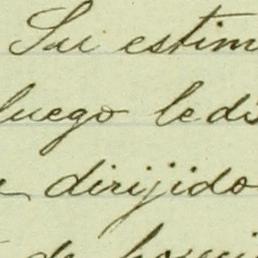 Su estim
luego le di
dirijido
de